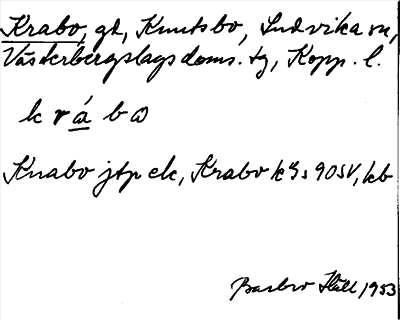 Krabo, gd, Knutsbo, Ludvika sn,
Västerbergslags doms. tg, Kopp. l.
k r á b ω
Knabo jtp ek, Krabo k 3 s 90 SV, kb
Barbro Häll 1953